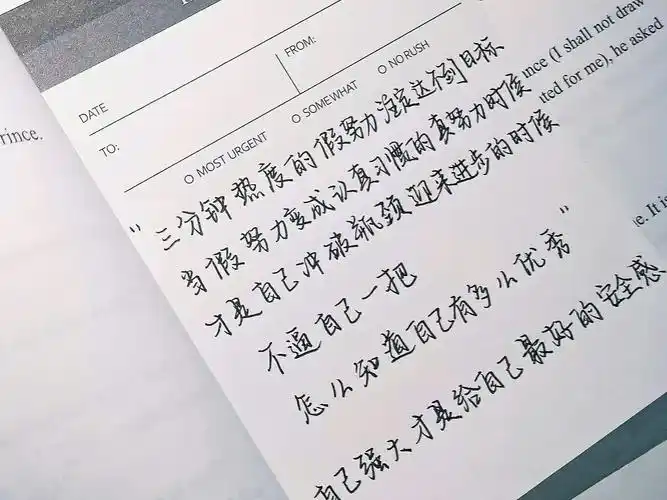 rince.
DATE
FROM:
TO:
MOST URGENT
SOMEWHAT
NO RUSH
“三分钟热度的假努力注定达不到目标
当假努力变成认真习惯的真努力时候
才是自己冲破瓶颈迎来进步的时候
不逼自己一把
怎么知道自己有多么优秀”
自己强大才是给自己最好的安全感
nce (I shall not draw
tted for me), he asked
e. It is